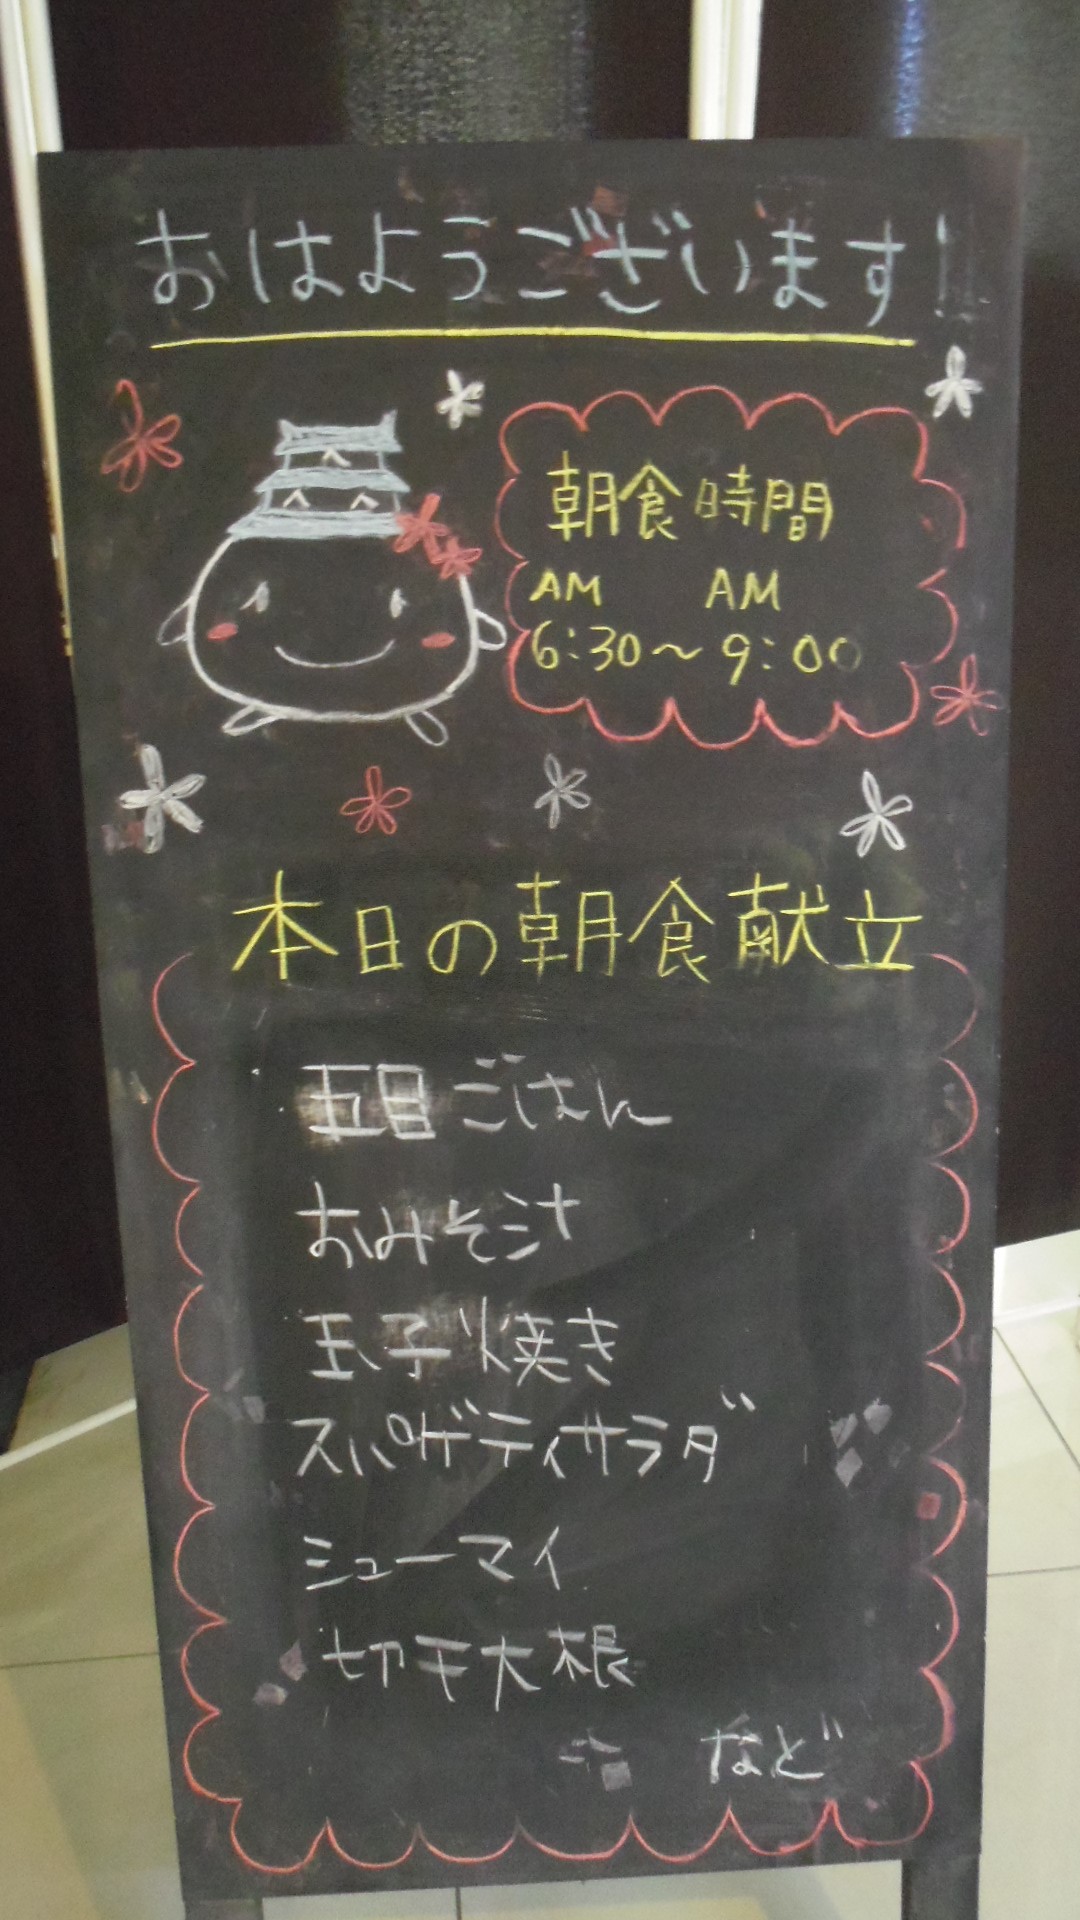 おはようございます!!
朝食時間
AM AM
6:30～9:00
本日の朝食献立
五目ごはん
おみそ汁
玉子焼き
スパゲティサラダ
シューマイ
切干大根
など